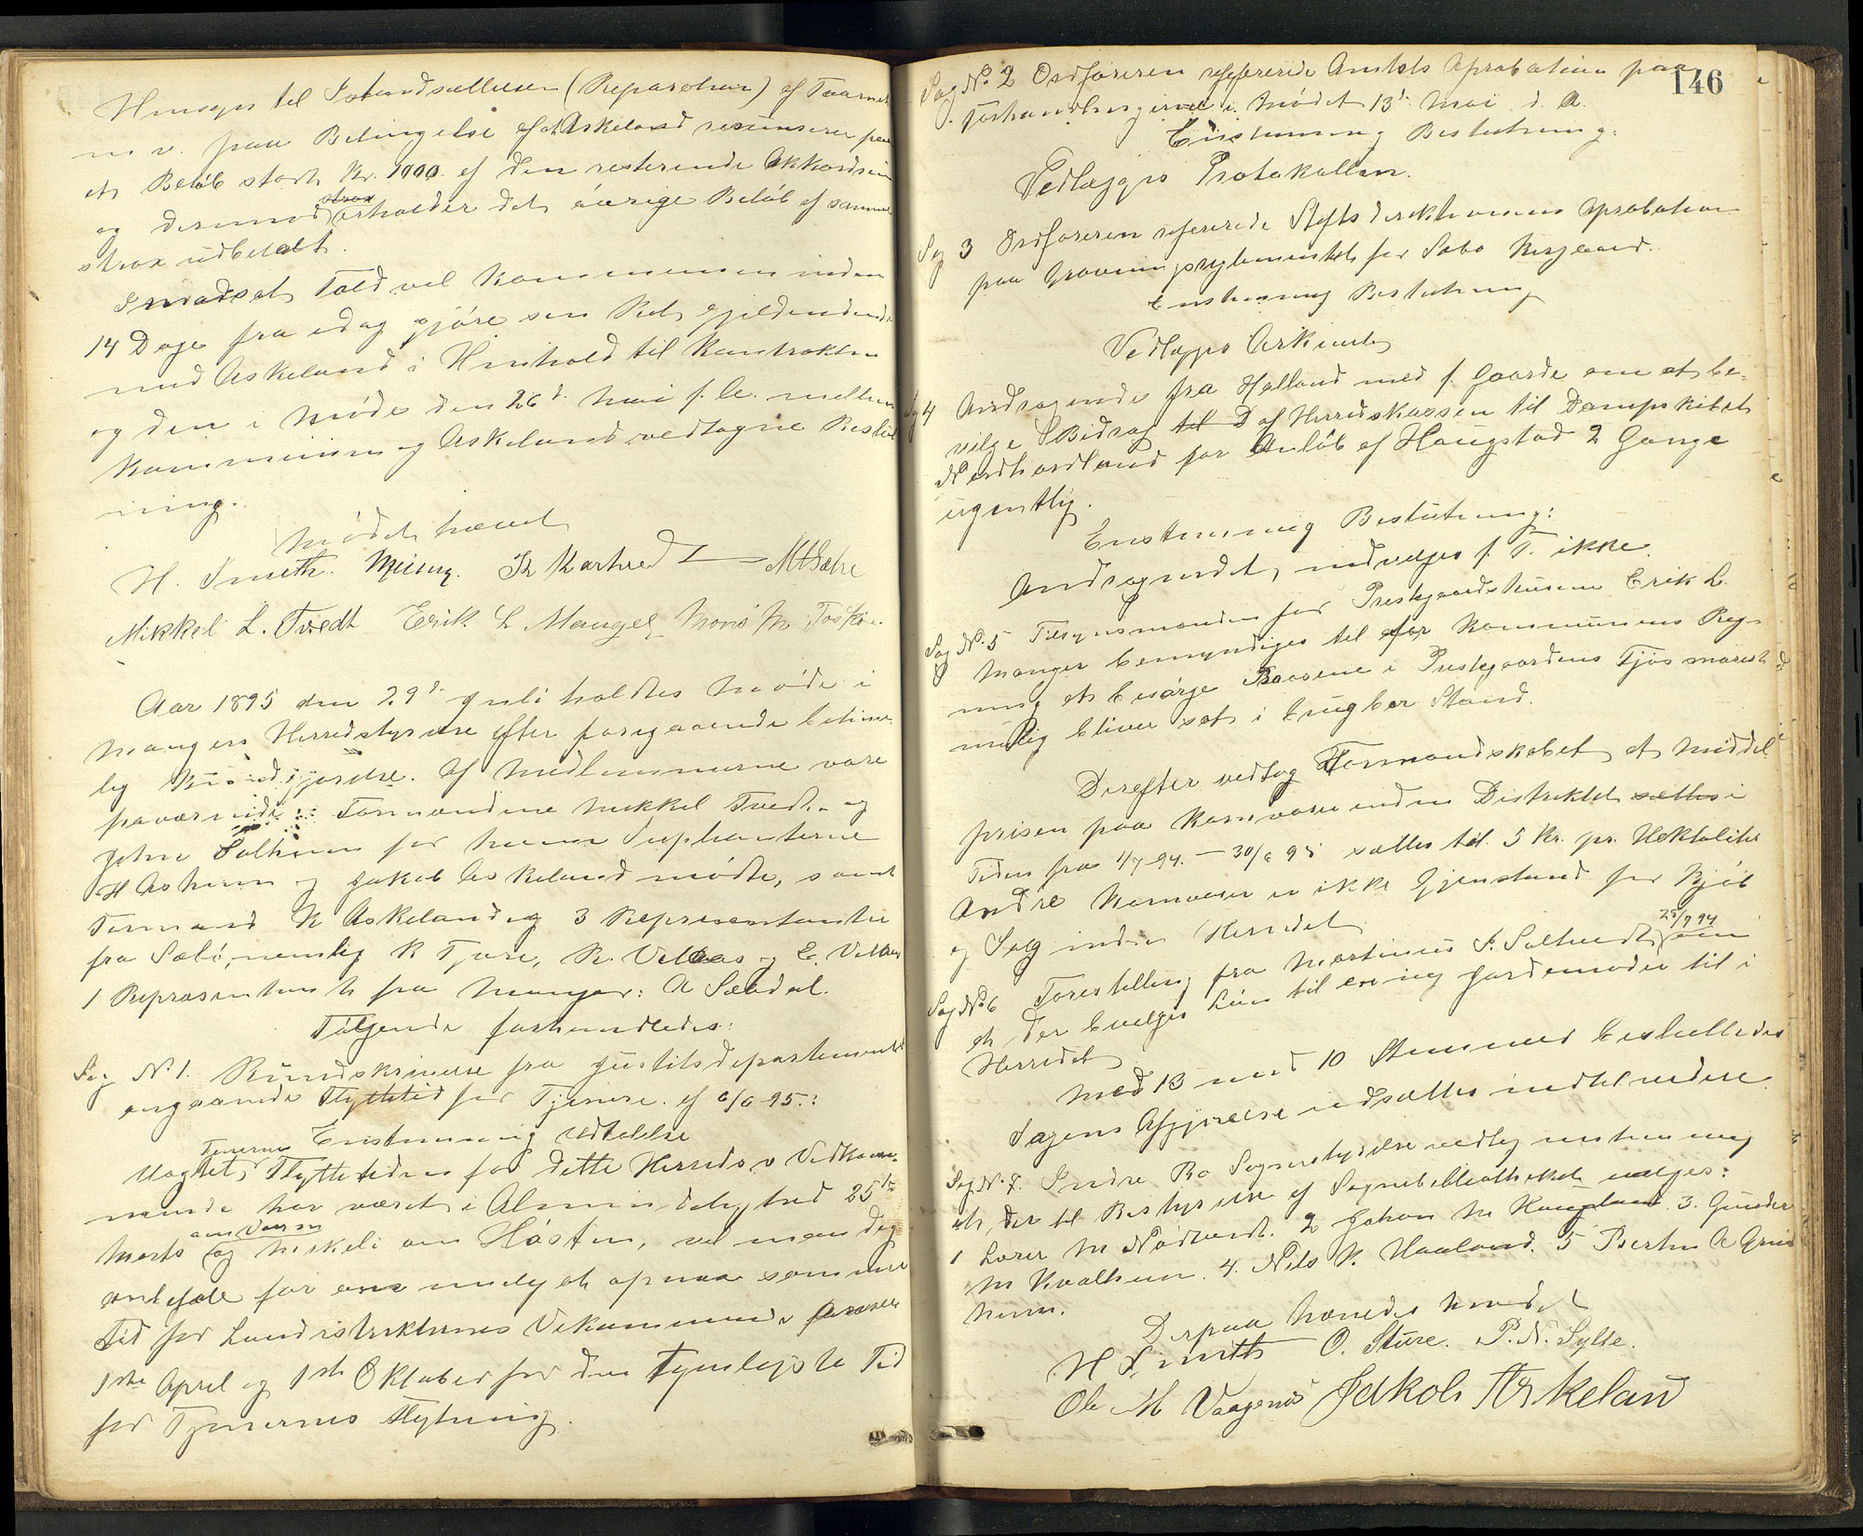 Hensyn til Istandsættelsen (Reparation) af Taarnet
m v. paa Betingelse af at Askeland renunserer paa
et Beløb stort Kr. 1000 af den resterende Akkordsum
og derimod strax erholder det øvrige Beløb af samme
strax udbetalt.
I modsat Fald vil Kommunen inden
14 Dage fra idag gjøre sin Ret gjeldende
mod Askeland i Henhold til Kontrakten
og den i Møde den 26d Mai f. A. mellem
Kommunen og Askeland vedtagne Beslut
ning.
Mødet hævet
H. Smith. K Kartved M H Sætre
Mikkel L. Tvedt Erik L Manger Mons M.
Aar 1895 den 29d Juli holdtes Møde i
Mangers Herredstyrelse efter foregaaende betime
lig Kundgjørelse. Af Medlemmerne vare
fraværende: Formændene Mikkel Tvedt og
John Solheim for hvem Suplianterne
H Askeim og Jakob Askeland mødte, samt
Formand N Askeland og 3 Repræsentanter
fra Sæbø, nemlig R Tjore, R. Vollaas og E. Vollaas
1 Repræsentant fra Manger: A Sædal.
Følgende forhandledes:
Sag No 1. Rundskrivelse fra Justitsdepartementet
angaaende Flyttetid for Tjenere af 6/6 95.:
Enstemmig Udtalelse
Uagtet Tjenernes Flyttetiden for dette Herreds v Vedkom-
mende har været i Almindelighed 25de
Marts om Vaaren og Mikkeli om Høsten, vil man dog
anbefale for om mulig at opnaa samme
Tid for Landistrikternes Vekommende foreslaa
1ste April og 1ste Oktober for den tjenligste Tid
for Tjenernes Flytning.
146
Sag No. 2 Ordføreren refererede Amtets Aprobation paa
Forhandlingerne i Mødet 13de Mai d. A.
Enstemmig Beslutning:
Vedlægges Protokollen.
Sag 3 Ordføreren refererede Stiftsdirektionens Aprobation
paa Gravningsreglementet for Sæbø Kirgaard.
Enstemmig Beslutning
Vedlægges Arkivet
Sag 4 Andragende fra Halland med f. Gaarde om at be-
vilge Bidrag til D af Herredskassen til Dampskibet
Nordhordland for Anløb af Haugstad 2 Gange
ugentlig.
Enstemmig Beslutning:
Andragendet, indvilges f. T. ikke.
Sag No. 5 Tilsynsmanden for Prestegaardshusene Erik L.
Manger bemyndiges til for Kommunens Reg-
ning at besørge Baasene i Prestegaardens Fjøs snarest
mulig bliver sat i brugbar Stand.
Derefter vedtog Formandskabet at Middel
prisen paa Kornvarer inden Distriktet sættes i
Tiden fra 1/7 94. — 30/6 95 sættes til 5 Kr. pr. Hektoliter
Andre Kornvarer er ikke Gjenstand for Kjøb
og Salg inden Herredet
Sag No 6 Forestilling fra Martinus J. Soltvedt 25/7 94 om
at der bevilges Løn til en ny Jordemoder til i
Herredet
Med 13 mod 10 Stemmer besluttedes
Sagens Afgjørelse udsættes indtil videre.
Sag No 7. Indre Bø Sognestyrelse vedtog enstemmig
at der til Bestyrelse af Sognebibliotheket vælges:
1 Lærer M Nødtvedt. 2 Johan M Haugland. 3. Gunder
M Kvalheim. 4. Nils K. Haaland. 5 Bertin A Grim
heim.
Derpaa hævedes Mødet
H Smith O. Sture. P. N. Sylte.
Ole M Vaagenæs Jakob Askeland